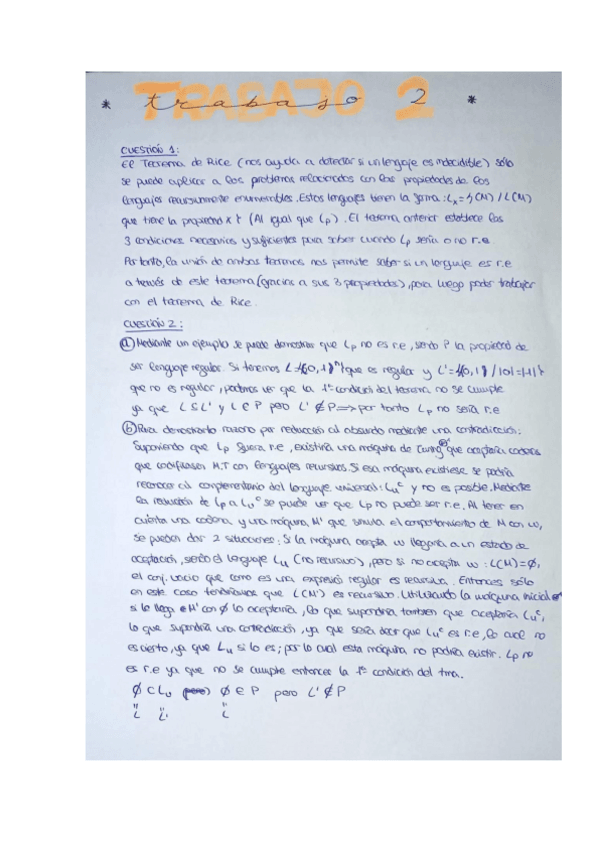 * trabajo 2 *
CUESTIÓN 1:
El Teorema de Rice (nos ayuda a detectar si un lenguaje es indecidible) sólo
se puede aplicar a los problemas relacionados con las propiedades de los
lenguajes recursivamente enumerables. Estos lenguajes tienen la forma: Lx = {(M) / L(M)
que tiene la propiedad x } (Al igual que Lp). El teorema anterior establece las
3 condiciones necesarias y suficientes para saber cuando Lp sería o no r.e.
Por tanto, la unión de ambos teoremas nos permite saber si un lenguaje es r.e
a través de este teorema (gracias a sus 3 propiedades), para luego poder trabajar
con el teorema de Rice.
CUESTIÓN 2:
a) Mediante un ejemplo se puede demostrar que Lp no es r.e, siendo P la propiedad de
ser lenguaje regular. Si tenemos L = {(0,1)^n} que es regular y L' = {(0,1) / |0|=|1|}
que no es regular, podemos ver que la 1ª condición del teorema no se cumple
ya que L ⊆ L' y L ∈ P pero L' ∉ P ⟹ por tanto Lp no sería r.e
b) Para demostrarlo razono por reducción al absurdo mediante una contradicción:
Suponiendo que Lp fuera r.e, existiría una máquina de Turing que aceptaría cadenas
que codifiquen M.T con lenguajes recursivos. Si esa máquina existiese se podría
reconocer al complementario del lenguaje universal: Lu^c y no es posible. Mediante
la reducción de Lp a Lu^c se puede ver que Lp no puede ser r.e. Al tener en
cuenta una cadena y una máquina M' que simula el comportamiento de M con w,
se pueden dar 2 situaciones: Si la máquina acepta w llegaría a un estado de
aceptación, siendo el lenguaje Lu (no recursivo), pero si no acepta w: L(M) = ∅,
el conj. vacío que como es una expresión regular es recursiva. Entonces sólo
en este caso tendríamos que L(M') es recursivo. Utilizando la máquina inicial
si le llega M' con ∅ lo aceptaría, lo que supondría también que aceptaría Lu^c,
lo que supondría una contradicción, ya que sería decir que Lu^c es r.e, lo cual no
es cierto, ya que Lu si lo es; por lo cual esta máquina no podría existir. Lp no
es r.e ya que no se cumple entonces la 1ª condición del tma.
∅ ⊂ Lu ∅ ∈ P pero L' ∉ P
" " "
L L' L